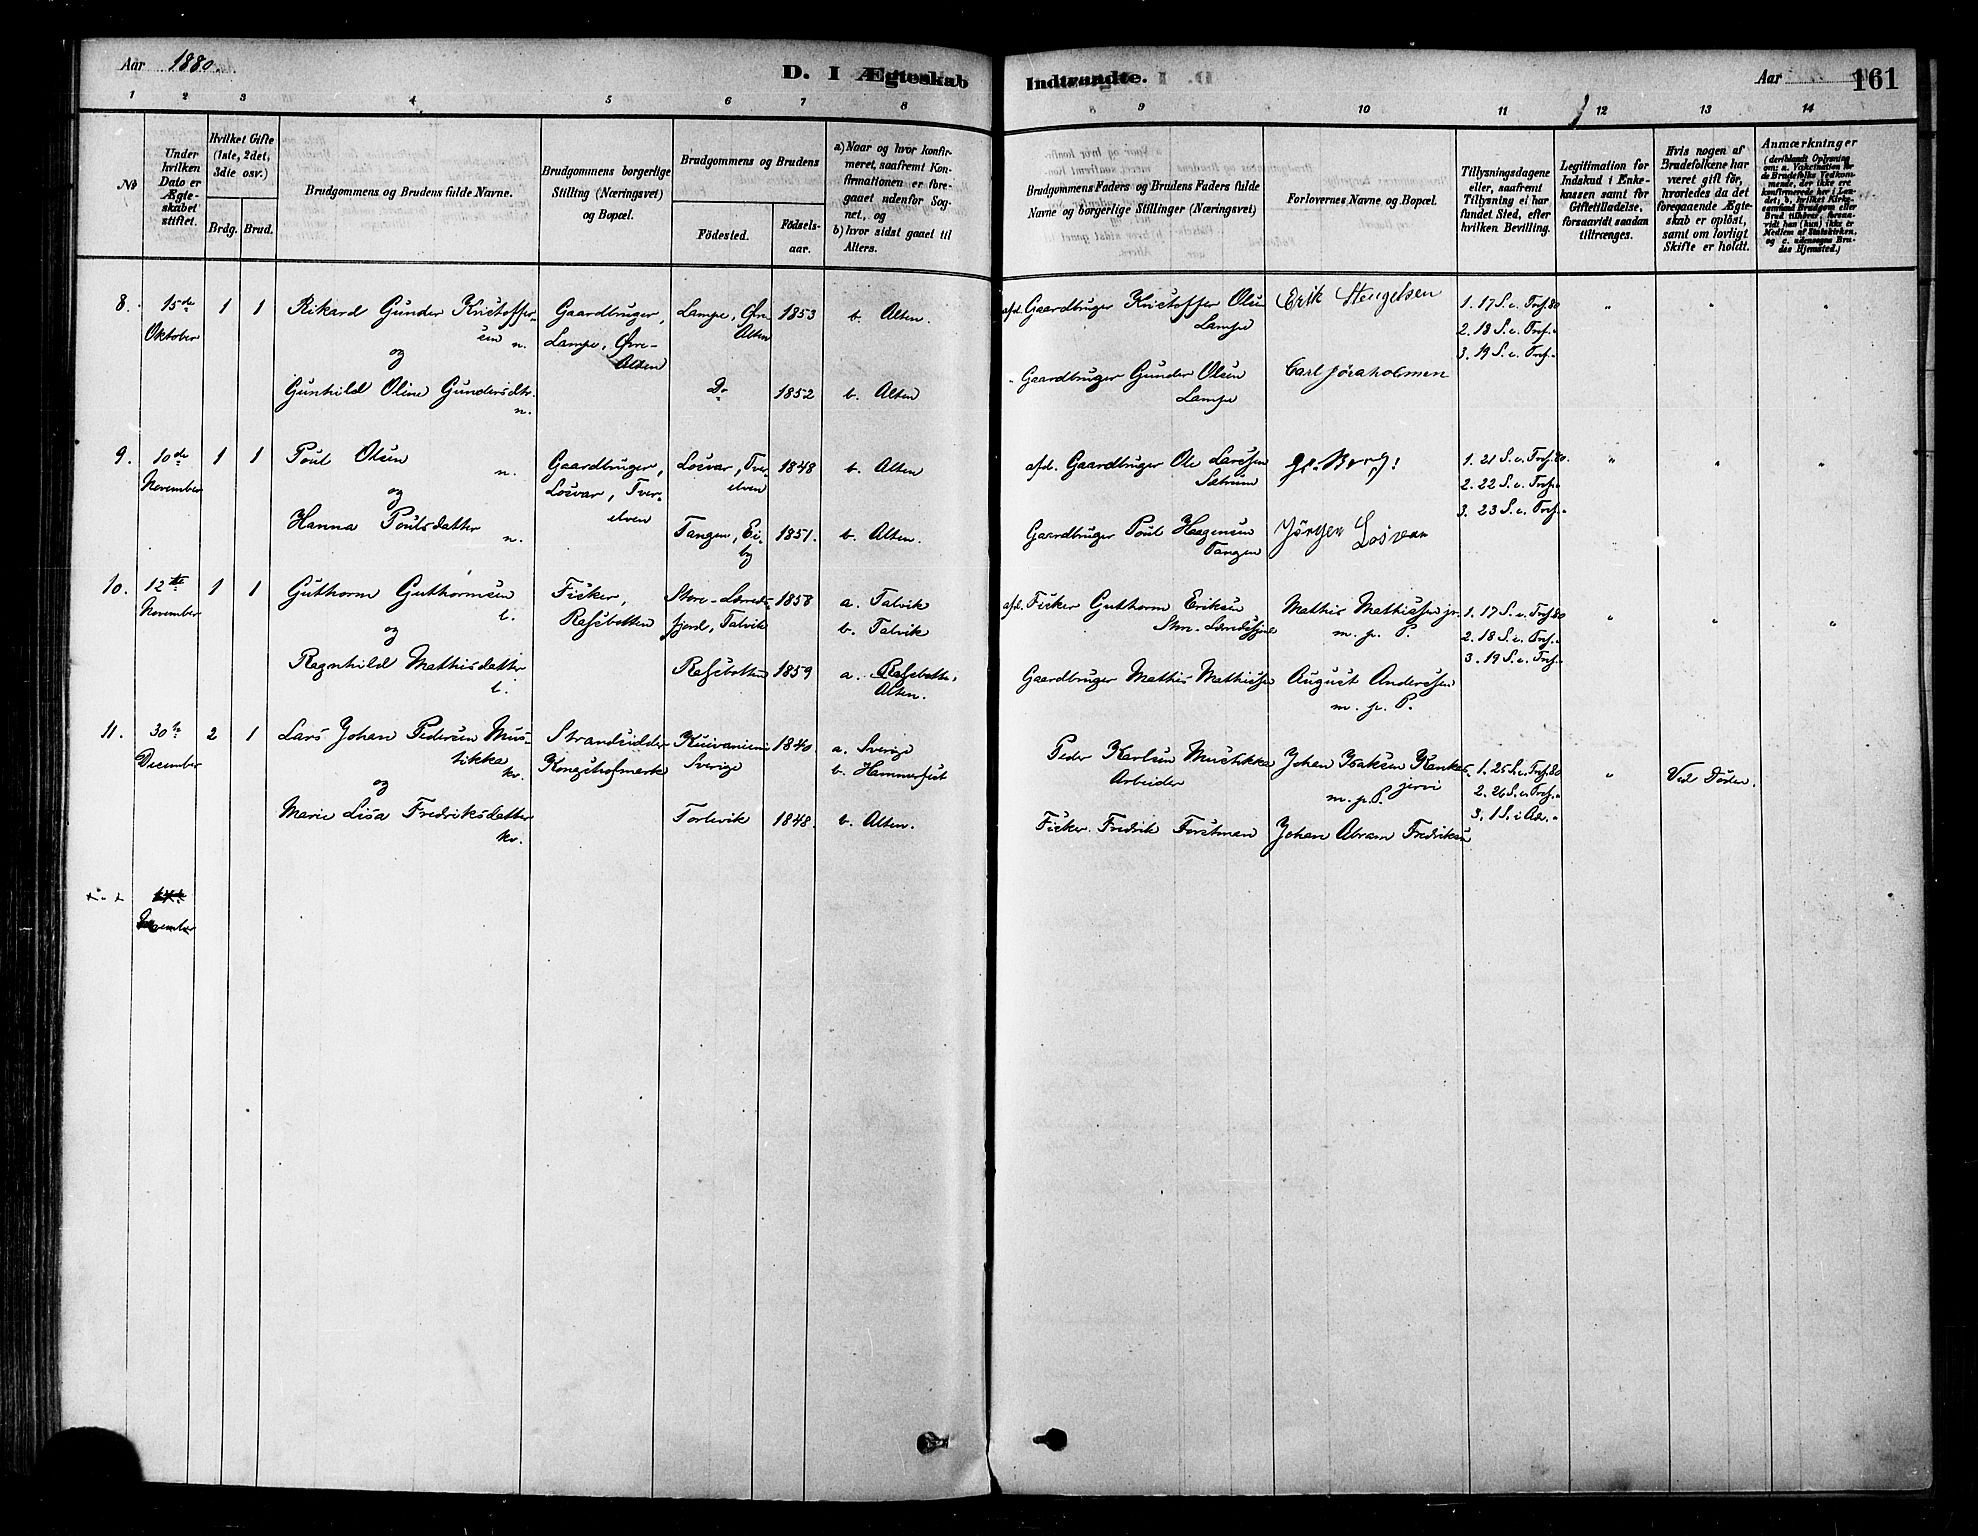 Aar 1880.
D. I Ægteskab Indtraadte.
Aar 161
1 2 3 4 5 6 7 8 9 10 11 12 13 14
No
Under hvilken Dato er Ægteskabet stiftet.
Hvilket Gifte (1ste, 2det, 3die osv.)
Brdg. Brud.
Brudgommens og Brudens fulde Navne.
Brudgommens borgerlige Stilling (Næringsvei) og Bopæl.
Brudgommens og Brudens
Födested.
Födselsaar.
a) Naar og hvor konfirmeret, saafremt Konfirmationen er foregaaet udenfor Sognet, og
b) hvor sidst gaaet til Alters.
Brudgommens Faders og Brudens Faders fulde Navne og borgerlige Stillinger (Næringsvei)
Forlovernes Navne og Bopæl.
Tillysningsdagene eller, saafremt Tillysning ei har fundet Sted, efter hvilken Bevilling.
Legitimation for Indskud i Enkekassen samt for Giftetilladelse, forsaavidt saadan tiltrænges.
Hvis nogen af Brudefolkene har været gift för, hvorledes da det foregaaende Ægteskab er oplöst, samt om lovligt Skifte er holdt.
Anmærkninger
8. 15de Oktober 1 1
Rikard Gunder Kristoffersen n.
og
Gunhild Oline Gundersdtr. n.
Gaardbruger, Lampe, Övre-Alten
Lampe, Övre Alten 1853 b. Alten.
Do 1852 b. Alten
afd. Gaardbruger Kristoffer Olsen Lampe
Gaardbruger Gunder Olsen Lampe
Erik Stengelsen
Carl Jöraholmen
1. 17 S. e. Tref. 80
2. 18 S. e. Tref. "
3. 19 S. e. Tref. "
9. 10de November 1 1
Poul Olsen n.
og
Hanna Poulsdatter n.
Gaardbruger, Losvar, Tverelven
Losvar, Tverelven 1848 b. Alten
Tangen, Eiby 1851. b. Alten.
afd. Gaardbruger Ole Larssen Sætrum
Gaardbruger Poul Haagensen Tangen
Jörgen Losvar
1. 21 S. e. Tref. 80.
2. 22 S. e. Tref. "
3. 23 S. e. Tref. "
10. 12te November 1 1
Guthorm Guthormsen l.
og
Ragnhild Mathisdatter l.
Fisker, Rafsbotten
Store-Lerredsfjord, Talvik 1858 a. Talvik b. Talvik
Rafsbotten 1859 a. Rafsbotten, Alten.
afd. Fisker Guthorm Eriksen Store-Lerredsfjord
Gaardbruger Mathis Mathissen
Mathis Mathissen jr. m. p. P.
August Anderssen m. p. P.
1. 17 S. e. Tref. 80
2. 18 S. e. Tref. "
3. 19 S. e. Tref. "
11. 30te December 2 1
Lars Johan Pedersen Mustikka kv.
og
Marie Lisa Fredriksdatter kv.
Strandsidder Kongshofmark
Kuivaniemi Sverige 1840 a. Sverige b. Hammerfest
Torlevik 1848. b. Alten.
Peder Karlsen Mustikka Arbeider
Fisker Fredrik Forstman
Johan Isaksen Kankasjervi m. p. P.
Johan Abram Fredriksen
1. 25 S. e. Tref. 80
2. 26 S. e. Tref. "
3. 1 S. i Ad. "
Ved Döden.